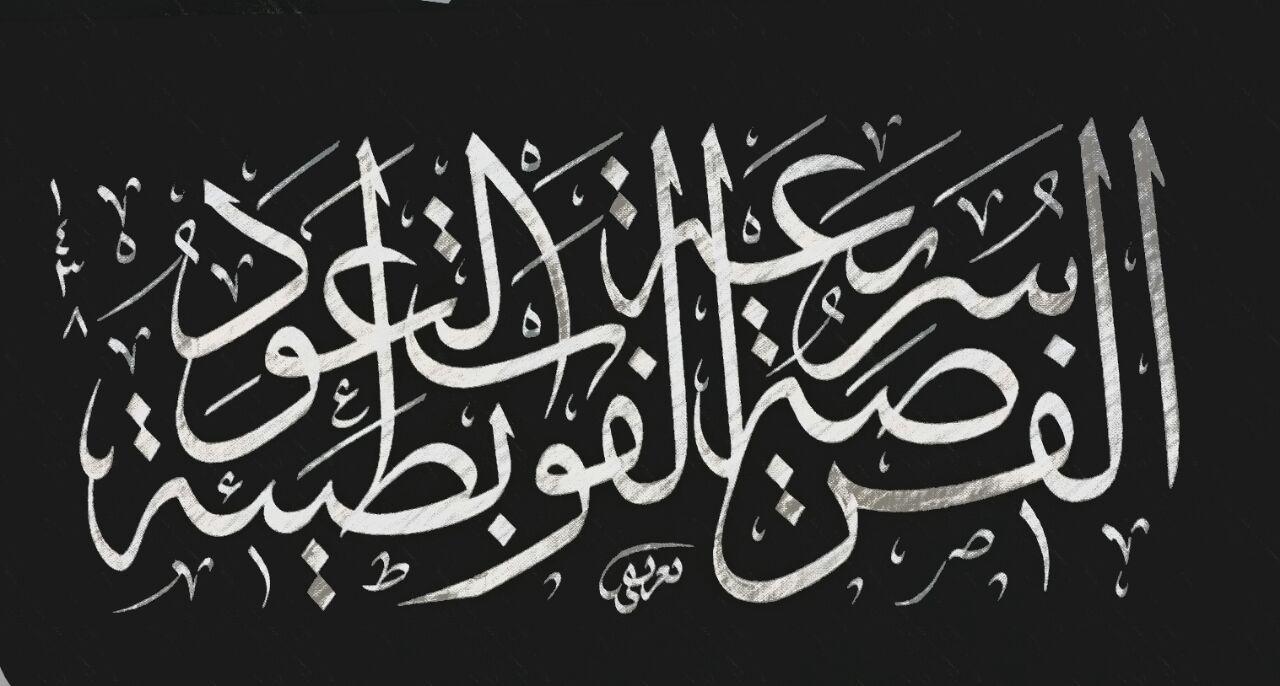 الفرصة سريعة الفوات بطيئة العود
١٤٣٨